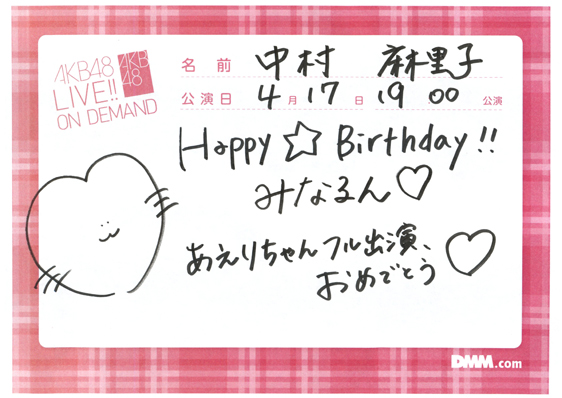 AKB48
LIVE!!
ON DEMAND
AKB
48
名前 中村 麻里子
公演日 4月17日 19 00 公演
Happy ☆ Birthday!!
みなるん♡
あえりちゃんフル出演、
おめでとう♡
DMM.com